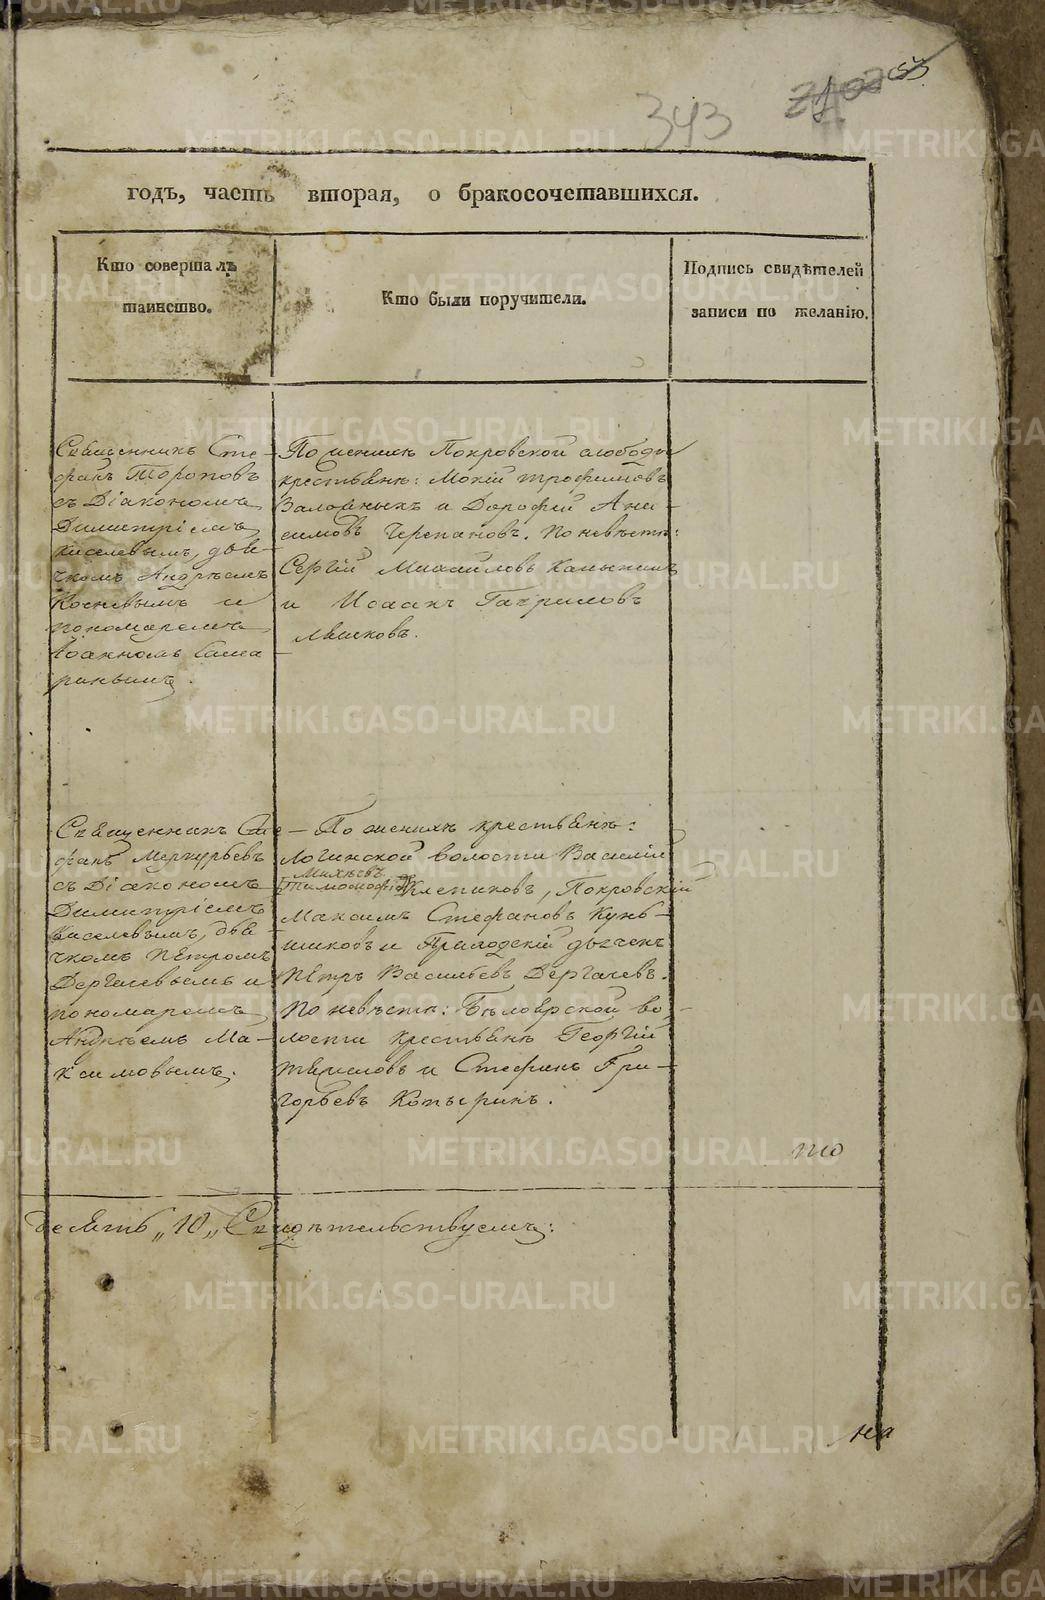 343
годъ, часть вторая, о бракосочетавшихся.
Кто совершалъ
таинство.
Кто были поручители.
Подпись свидѣтелей
записи по желанію.
Священникъ Сте-
фанъ Тороповъ
съ Діакономъ
Димитріемъ
Киселевымъ, дья-
чкомъ Андреемъ
и
пономаремъ
Іоанномъ Сама
ринымъ.
По женихѣ Покровской слободы
крестьяне: Мокій Трофимовъ
и Дорофей Ани-
симовъ Черепановъ. По невѣстѣ:
Сергій Михайловъ
и Исаакъ Гавриловъ
Священникъ Сте-
фанъ Меркурьевъ
съ Діакономъ
Димитріемъ
Киселевымъ, дья-
чкомъ Петромъ
Дергачевымъ и
пономаремъ
Андреемъ Ма-
ксимовымъ.
По женихѣ крестьяне:
Логинской волости Василій
Михѣевъ
Клепиковъ, Покровскій
Максимъ Стефановъ
и дьячекъ
Петръ Васильевъ Дергачевъ.
По невѣстѣ: Бѣлоярской во-
лости крестьяне Георгій
и Стефанъ Гри-
горьевъ Копыринъ.
что
десять „10„ Свидѣтельствуемъ:
METRIKI.GASO-URAL.RU